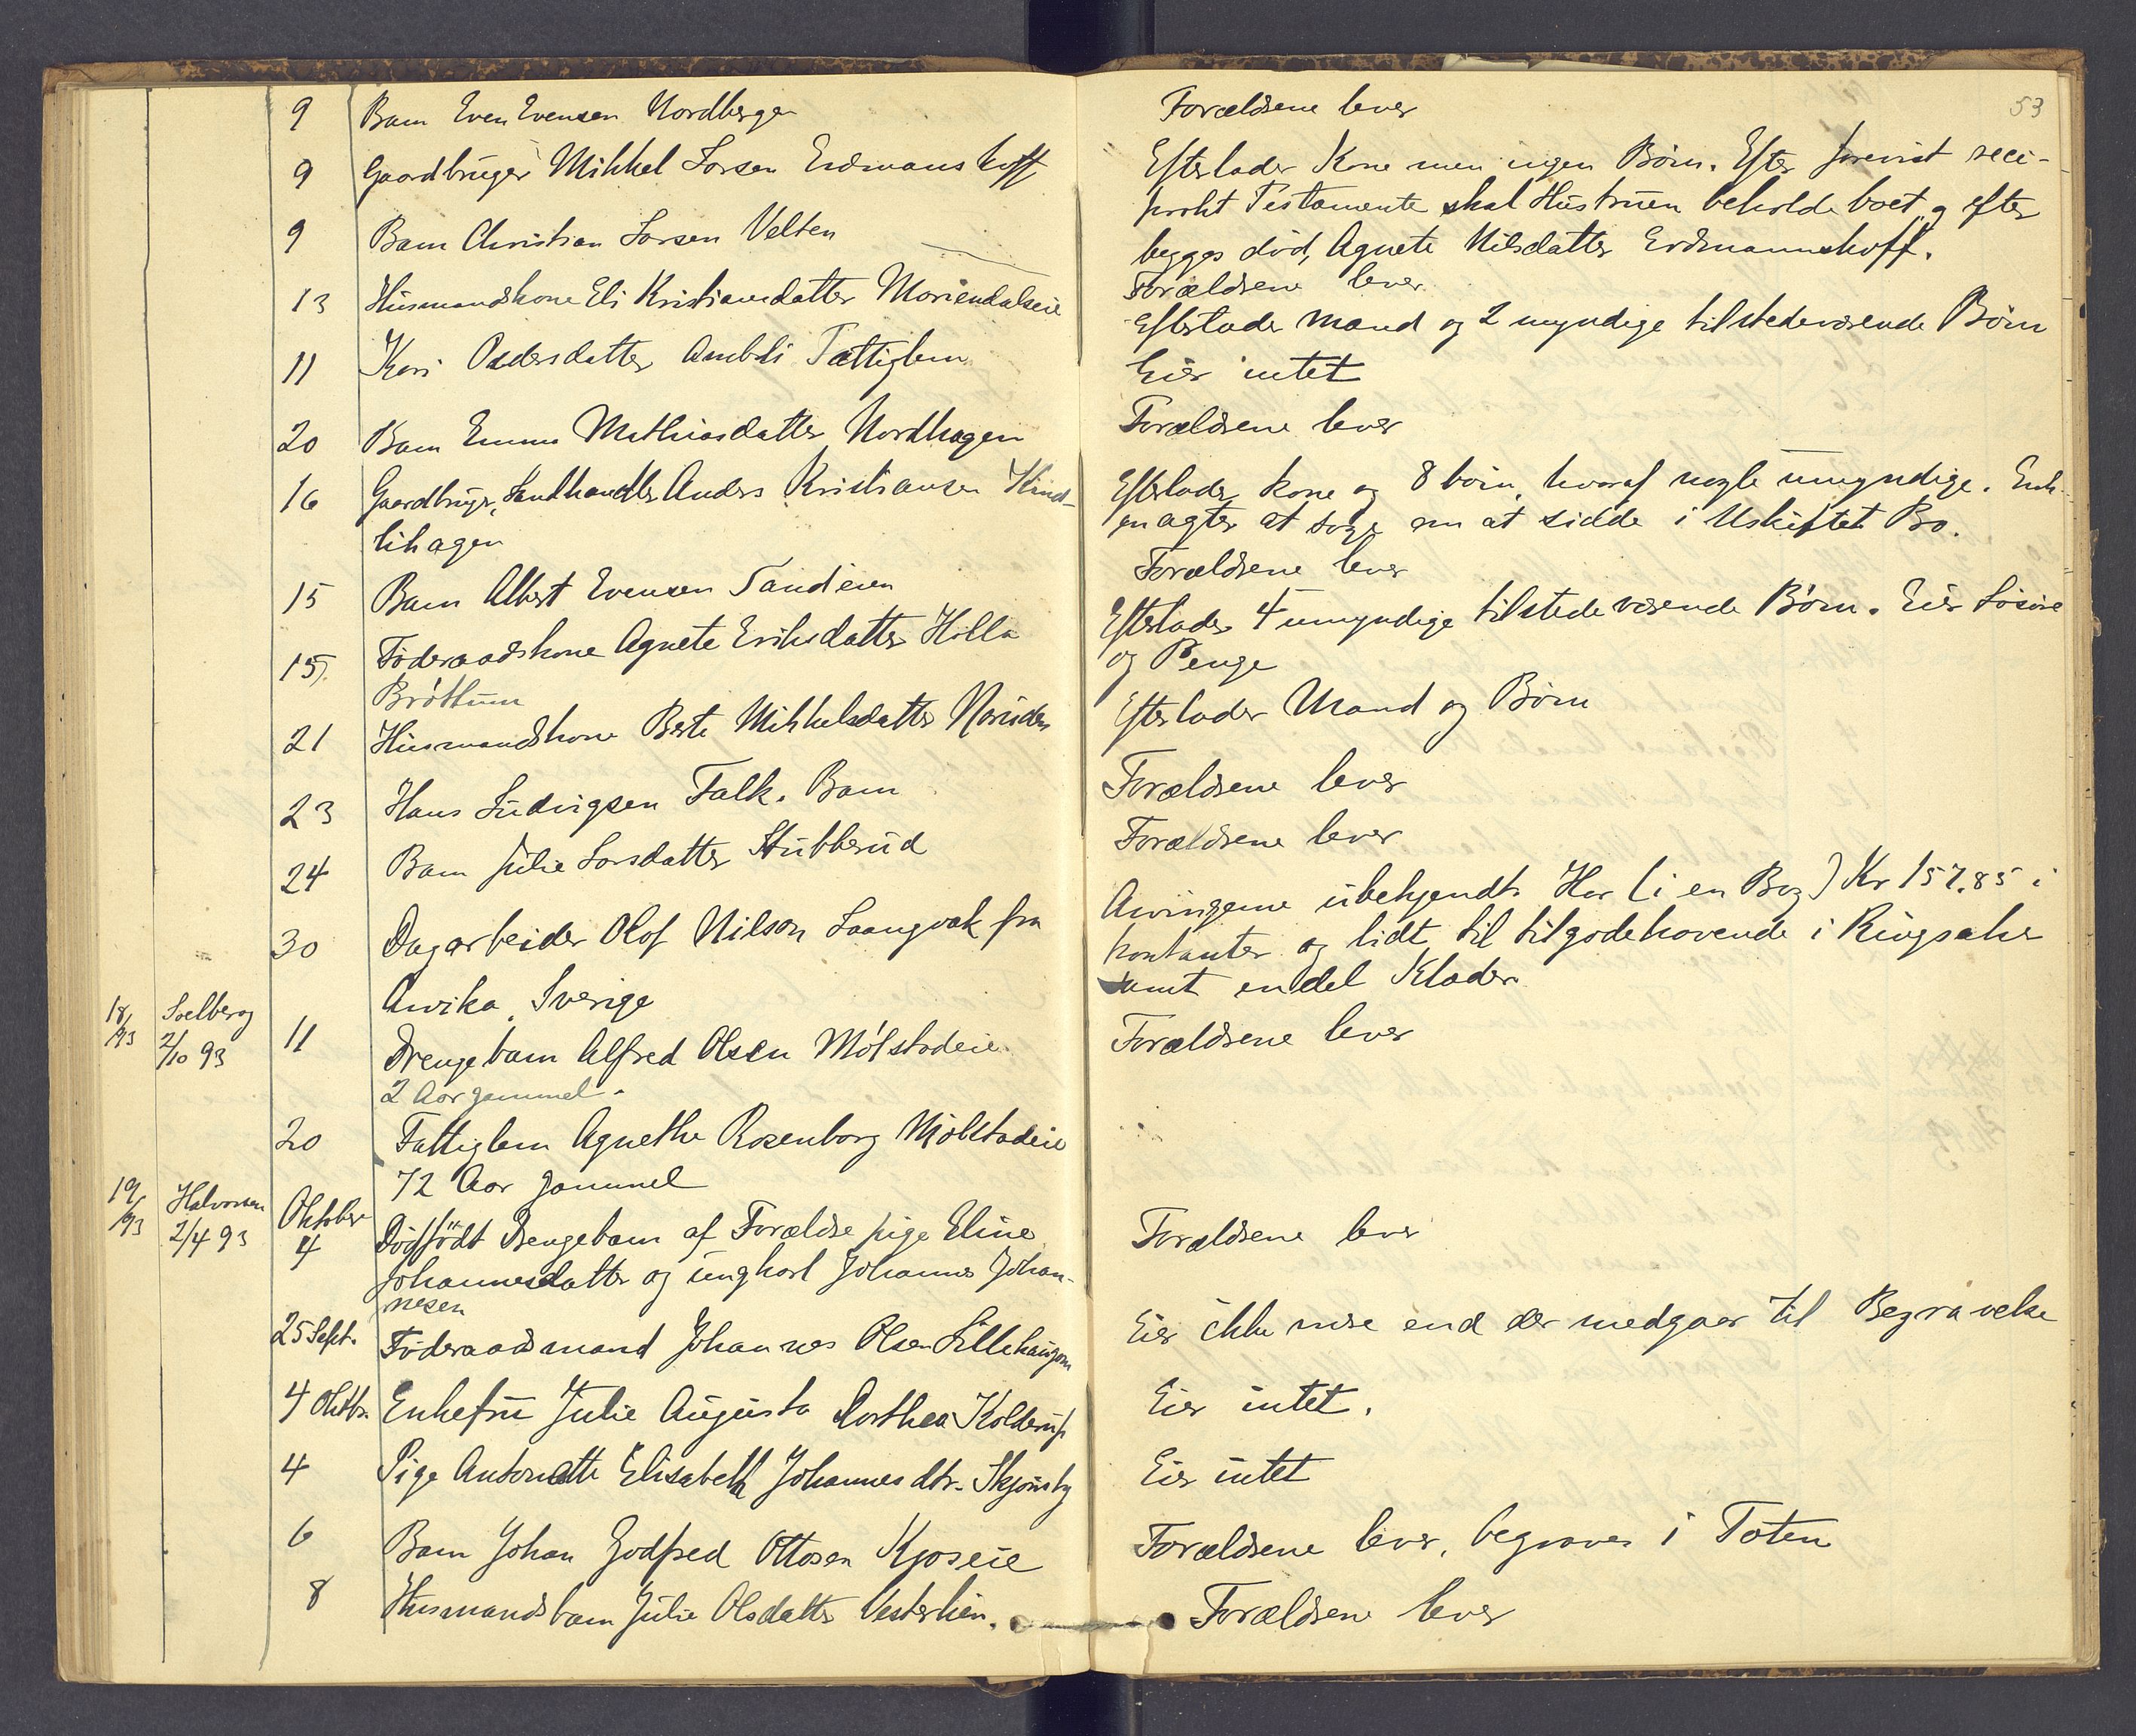 53
9 Barn Even Evensen Nordbergen
9 Gaardbruger Mikkel Larsen Erdmanshoff
9 Barn Christian Larsen Velten
13 Husmandskone Eli Kristiansdatter Moriendalseie
11 Kari Andersdatter Ambli Fattiglem
20 Barn Emma Mathiasdatter Nordhagen
16 Gaardbruger, Landhandler Anders Kristiansen Kind-
lihagen
15 Barn Albert Evensen Sandeien
15. Føderaadskone Agnete Eriksdatter Holla
Brøttum
21 Husmandskone Berte Mikkelsdatter
23 Hans Ludvigsen Falk. Barn
24 Barn Julie Larsdatter Stubberud
30 Dagarbeider Olof Nilson Laangvak fra
Arvika, Sverige
18/ 93 Solberg 2/10 93
11 Drengebarn Alfred Olsen Mølstadeie
2 Aar gammel.
20 Fattiglem Agnethe Rosenborg Mølstadeie
72 Aar gammel
19/ 93 Halvorsen 2/4 93
Oktober
4 Dødfødt Drengebarn af Forældre pige Eline
Johannesdatter og ungkarl Johannes Johan-
nesen
25 Sept. Føderaadsmand Johannes Olsen Lillehaugen
4 Oktbr. Enkefru Julie Augusta Dorthea Kolderup
4 Pige Antonette Elisabeth Johannesdtr. Skjønsby
6 Barn Johan Godfred Ottosen Kjoseie
8 Husmandsbarn Julie Olsdatter Vesterlien.
Forældrene lever
Efterlader Kone men ingen Børn. Efter forevist reci-
prokt Testamente skal Hustruen beholde boet og efter
begges død, Agnete Nilsdatter Erdmannshoff.
Forældrene lever
Efterlader Mand og 2 myndige tilstedeværende Børn
Eier intet
Forældrene lever
Efterlader kone og 8 børn, hvoraf nogle umyndige. Enk-
en agter at søge om at sidde i Uskiftet Bo.
Forældrene lever
Efterlader 4 umyndige tilstedeværende Børn. Eier Løsøre
og Penge
Efterlader Mand og Børn
Forældrene lever
Forældrene lever
Arvingerne ubekjendt. Har (i en Bog) Kr 157.85 i
kontanter og lidt til tilgodehavende i Ringsaker
samt endel Klæder.
Forældrene lever
Forældrene lever
Eier ikke mere end der medgaar til Begravelse
Eier intet.
Eier intet
Forældrene lever, begraves i Toten
Forældrene lever